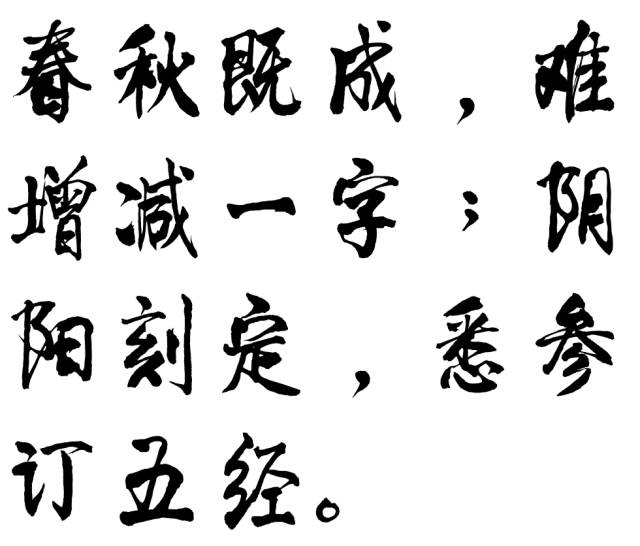 春秋既成，难
增减一字；阴
阳刻定，悉参
订五经。